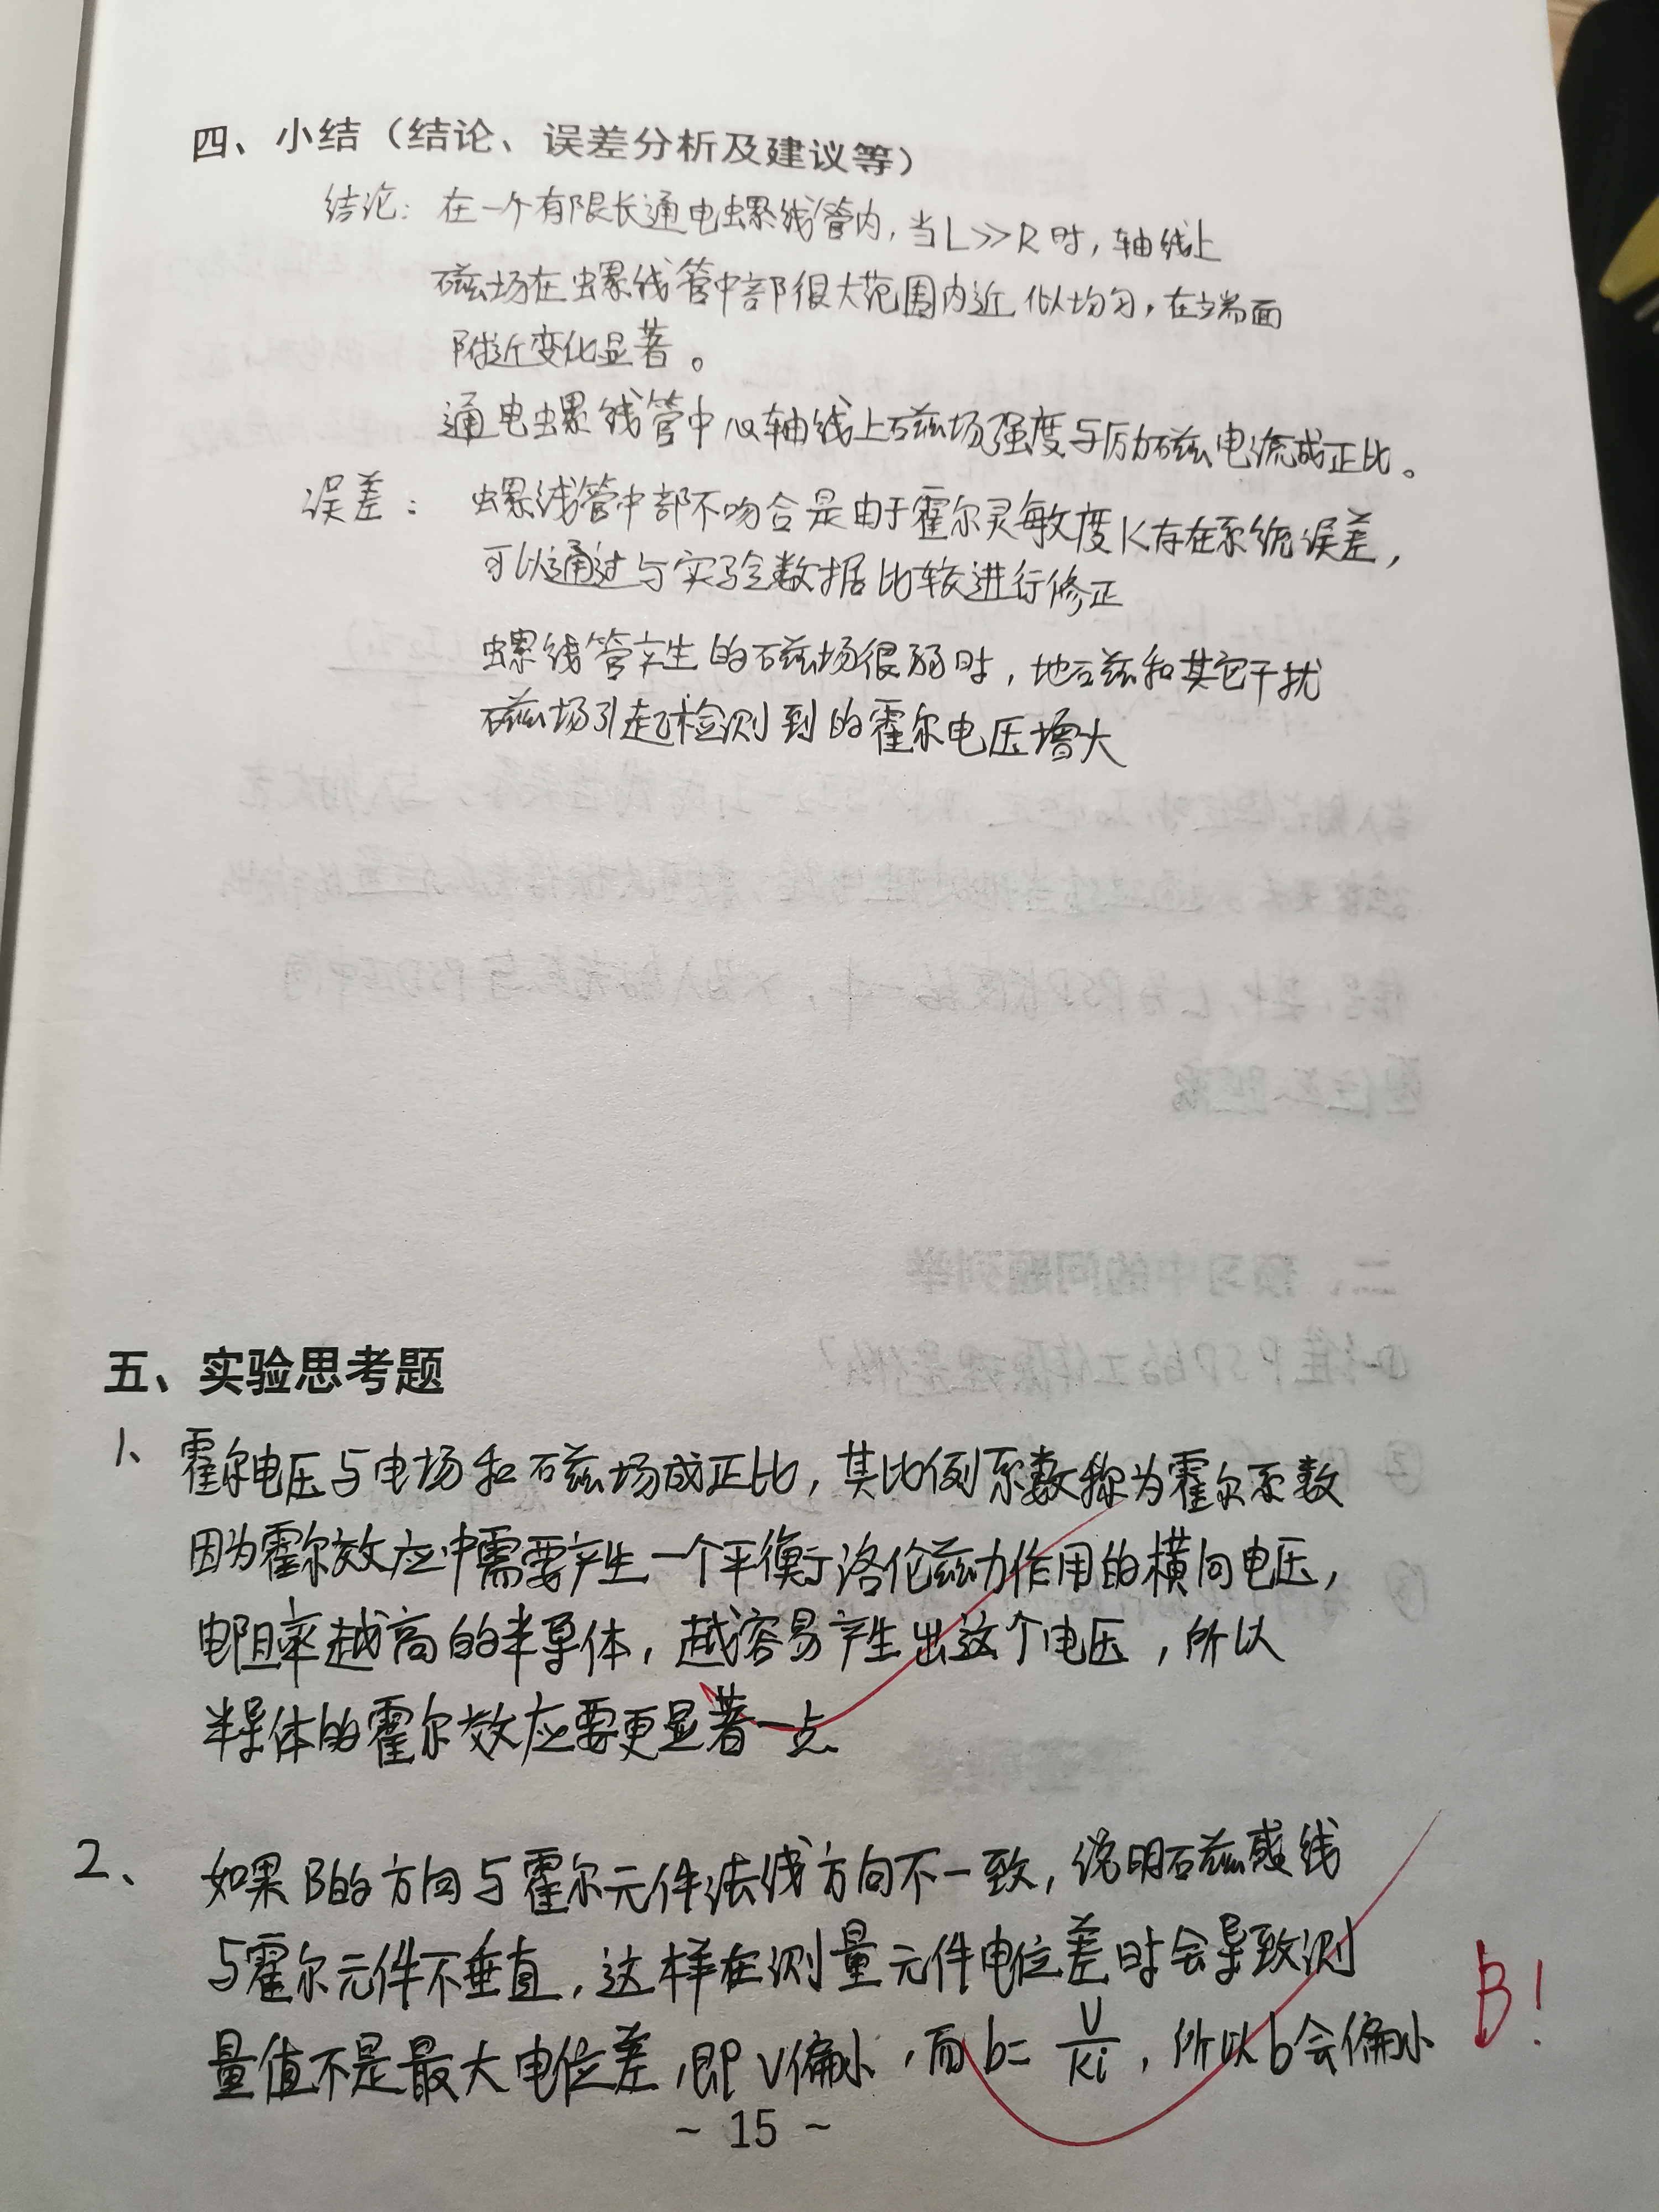 四、小结（结论、误差分析及建议等）
结论：在一个有限长通电螺线管内，当L>>R时，轴线上
磁场在螺线管中部很大范围内近似均匀，在端面
附近变化显著。
通电螺线管中心轴线上磁场强度与励磁电流成正比。
误差：螺线管中部不吻合是由于霍尔灵敏度K存在系统误差，
可以通过与实验数据比较进行修正
螺线管产生的磁场很弱时，地磁和其它干扰
磁场引起检测到的霍尔电压增大
五、实验思考题
1、霍尔电压与电场和磁场成正比，其比例系数称为霍尔系数
因为霍尔效应中需要产生一个平衡于洛伦兹力作用的横向电压，
电阻率越高的半导体，越容易产生出这个电压，所以
半导体的霍尔效应要更显著一点
2、如果B的方向与霍尔元件法线方向不一致，说明磁感线
与霍尔元件不垂直，这样在测量元件电位差时会导致测
量值不是最大电位差，即V偏小，而b=V/Ki，所以b会偏小
B!
~ 15 ~